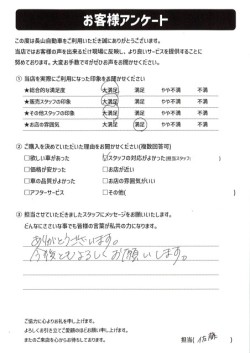 お客様アンケート
この度は長山自動車をご利用いただき誠にありがとうございます。
当店ではお客様の声を出来るだけ現場に反映し、より良いサービスを提供することに
努めております。大変お手数ですがぜひお声をお聞かせください。
① 当店を実際にご利用になった印象をお聞かせください
★総合的な満足度 大満足 満足 やや不満 不満
★販売スタッフの印象 大満足 満足 やや不満 不満
★その他スタッフの印象 大満足 満足 やや不満 不満
★お店の雰囲気 大満足 満足 やや不満 不満
② ご購入を決めていただいた理由をお聞かせください(複数回答可)
□欲しい車があった ☑スタッフの対応がよかった(担当スタッフ: )
□価格が安かった □お店が近い
□車の品質がよかった □お店の雰囲気がいい
□アフターサービス □その他( )
③ 担当させていただきましたスタッフにメッセージをお願いいたします。
どんなにささいな事でも皆様の言葉が私共の力になります。
ありがとうございます。
今後ともよろしくお願いします。
ご協力に心よりお礼を申し上げます。
よろしくお引き立てご愛顧のほどお願い申し上げます。
またのご来店を心からお待ちしております。
担当( 佐藤 )